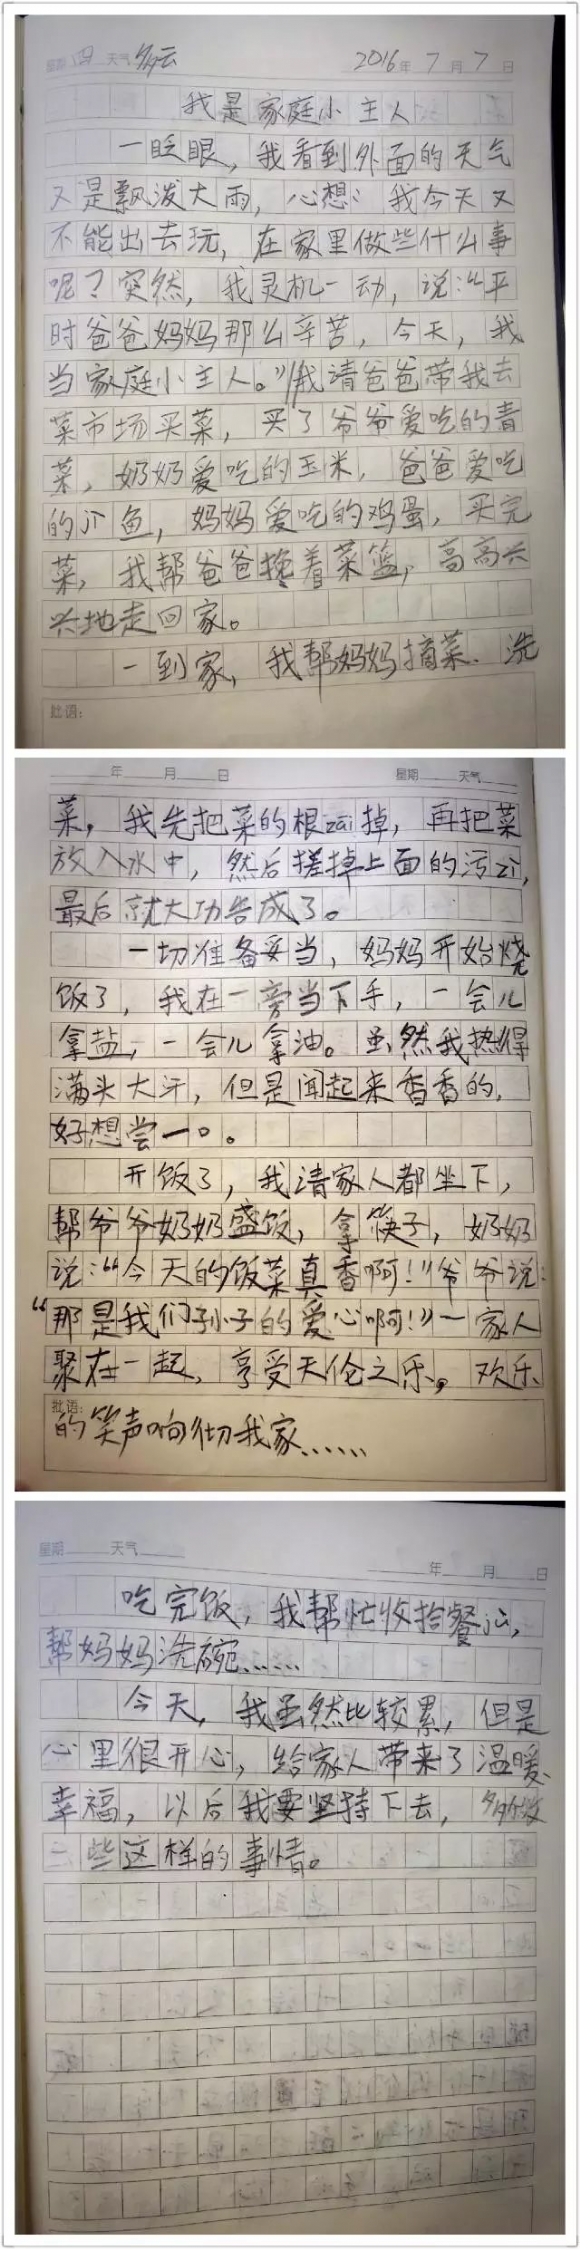 星期四 天气多云 2016年7月7日
我是家庭小主人
一眨眼，我看到外面的天气
又是飘泼大雨，心想：我今天又
不能出去玩，在家里做些什么事
呢？突然，我灵机一动，说：“平
时爸爸妈妈那么辛苦，今天，我
当家庭小主人。”我请爸爸带我去
菜市场买菜，买了爷爷爱吃的青
菜，奶奶爱吃的玉米，爸爸爱吃
的小鱼，妈妈爱吃的鸡蛋，买完
菜，我帮爸爸挽着菜篮，高高兴
兴地走回家。
一到家，我帮妈妈摘菜、洗
批语：
年 月 日 星期 天气
菜，我先把菜的根zāi掉，再把菜
放入水中，然后搓掉上面的污zì，
最后就大功告成了。
一切准备妥当，妈妈开始烧
饭了，我在一旁当下手，一会儿
拿盐，一会儿拿油。虽然我热得
满头大汗，但是闻起来香香的，
好想尝一口。
开饭了，我请家人都坐下，
帮爷爷奶奶盛饭，拿筷子，奶奶
说：“今天的饭菜真香啊！”爷爷说：
“那是我们孙子的爱心啊！”一家人
聚在一起，享受天伦之乐。欢乐
批语：
的笑声响彻我家……
星期 天气 年 月 日
吃完饭，我帮忙收拾餐jù，
帮妈妈洗碗……
今天，我虽然比较累，但是
心里很开心，给家人带来了温暖、
幸福，以后我要坚持下去，多做
一些这样的事情。